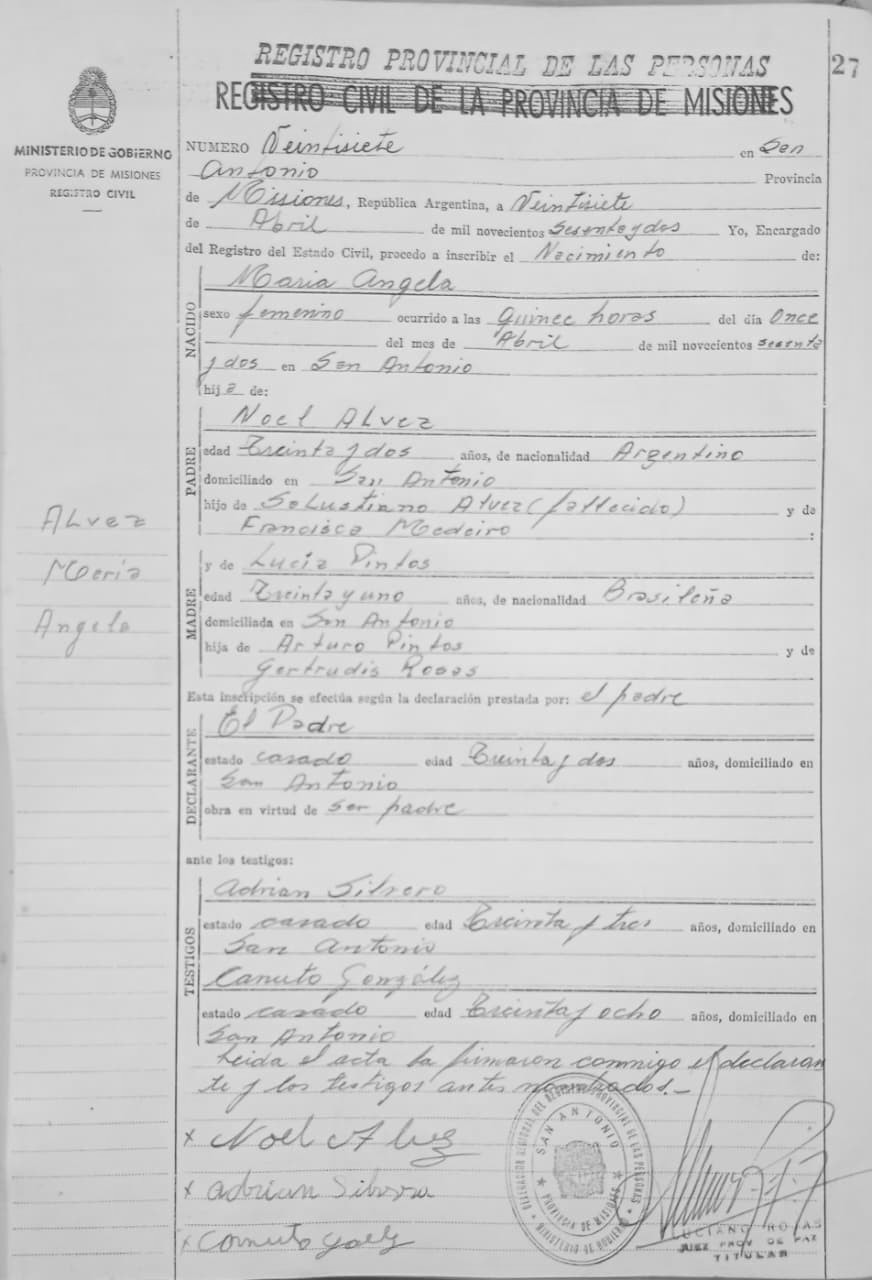 REGISTRO PROVINCIAL DE LAS PERSONAS
27
REGISTRO CIVIL DE LA PROVINCIA DE MISIONES
MINISTERIO DE GOBIERNO
PROVINCIA DE MISIONES
REGISTRO CIVIL
NUMERO Veintisiete en San
Antonio Provincia
de Misiones, República Argentina, a Veintisiete
de Abril de mil novecientos Sesenta y dos Yo, Encargado
del Registro del Estado Civil, procedo a inscribir el Nacimiento de:
NACIDO
Maria Angela
sexo femenino ocurrido a las Quince horas del día Once
del mes de Abril de mil novecientos sesenta
y dos en San Antonio
hija de:
PADRE
Noel Alvez
edad Treinta y dos años, de nacionalidad Argentino
domiciliado en San Antonio
hijo de Salustiano Alvez (fallecido) y de
Francisca Medeiro :
Alvez
Maria
Angela
MADRE
y de Lucia Pintos
edad Treinta y uno años, de nacionalidad Brasileña
domiciliada en San Antonio
hija de Arturo Pintos y de
Gertrudis Rosas
Esta inscripción se efectúa según la declaración prestada por: el padre
DECLARANTE
El Padre
estado casado edad Treinta y dos años, domiciliado en
San Antonio
obra en virtud de ser padre
ante los testigos:
TESTIGOS
Adrian Silvero
estado casado edad Treinta y tres años, domiciliado en
San Antonio
Canuto González
estado casado edad Treinta y ocho años, domiciliado en
San Antonio
Leida el acta la firmaron conmigo el declaran
te y los testigos antes nombrados.-
x Noel Alvez
x Adrian Silvero
x
DELEGACION REGIONAL DEL REGISTRO PROVINCIAL DE LAS PERSONAS
SAN ANTONIO
PROVINCIA DE MISIONES
MINISTERIO DE GOBIERNO
LUCIANO ROJAS
JUEZ PROV DE PAZ
TITULAR